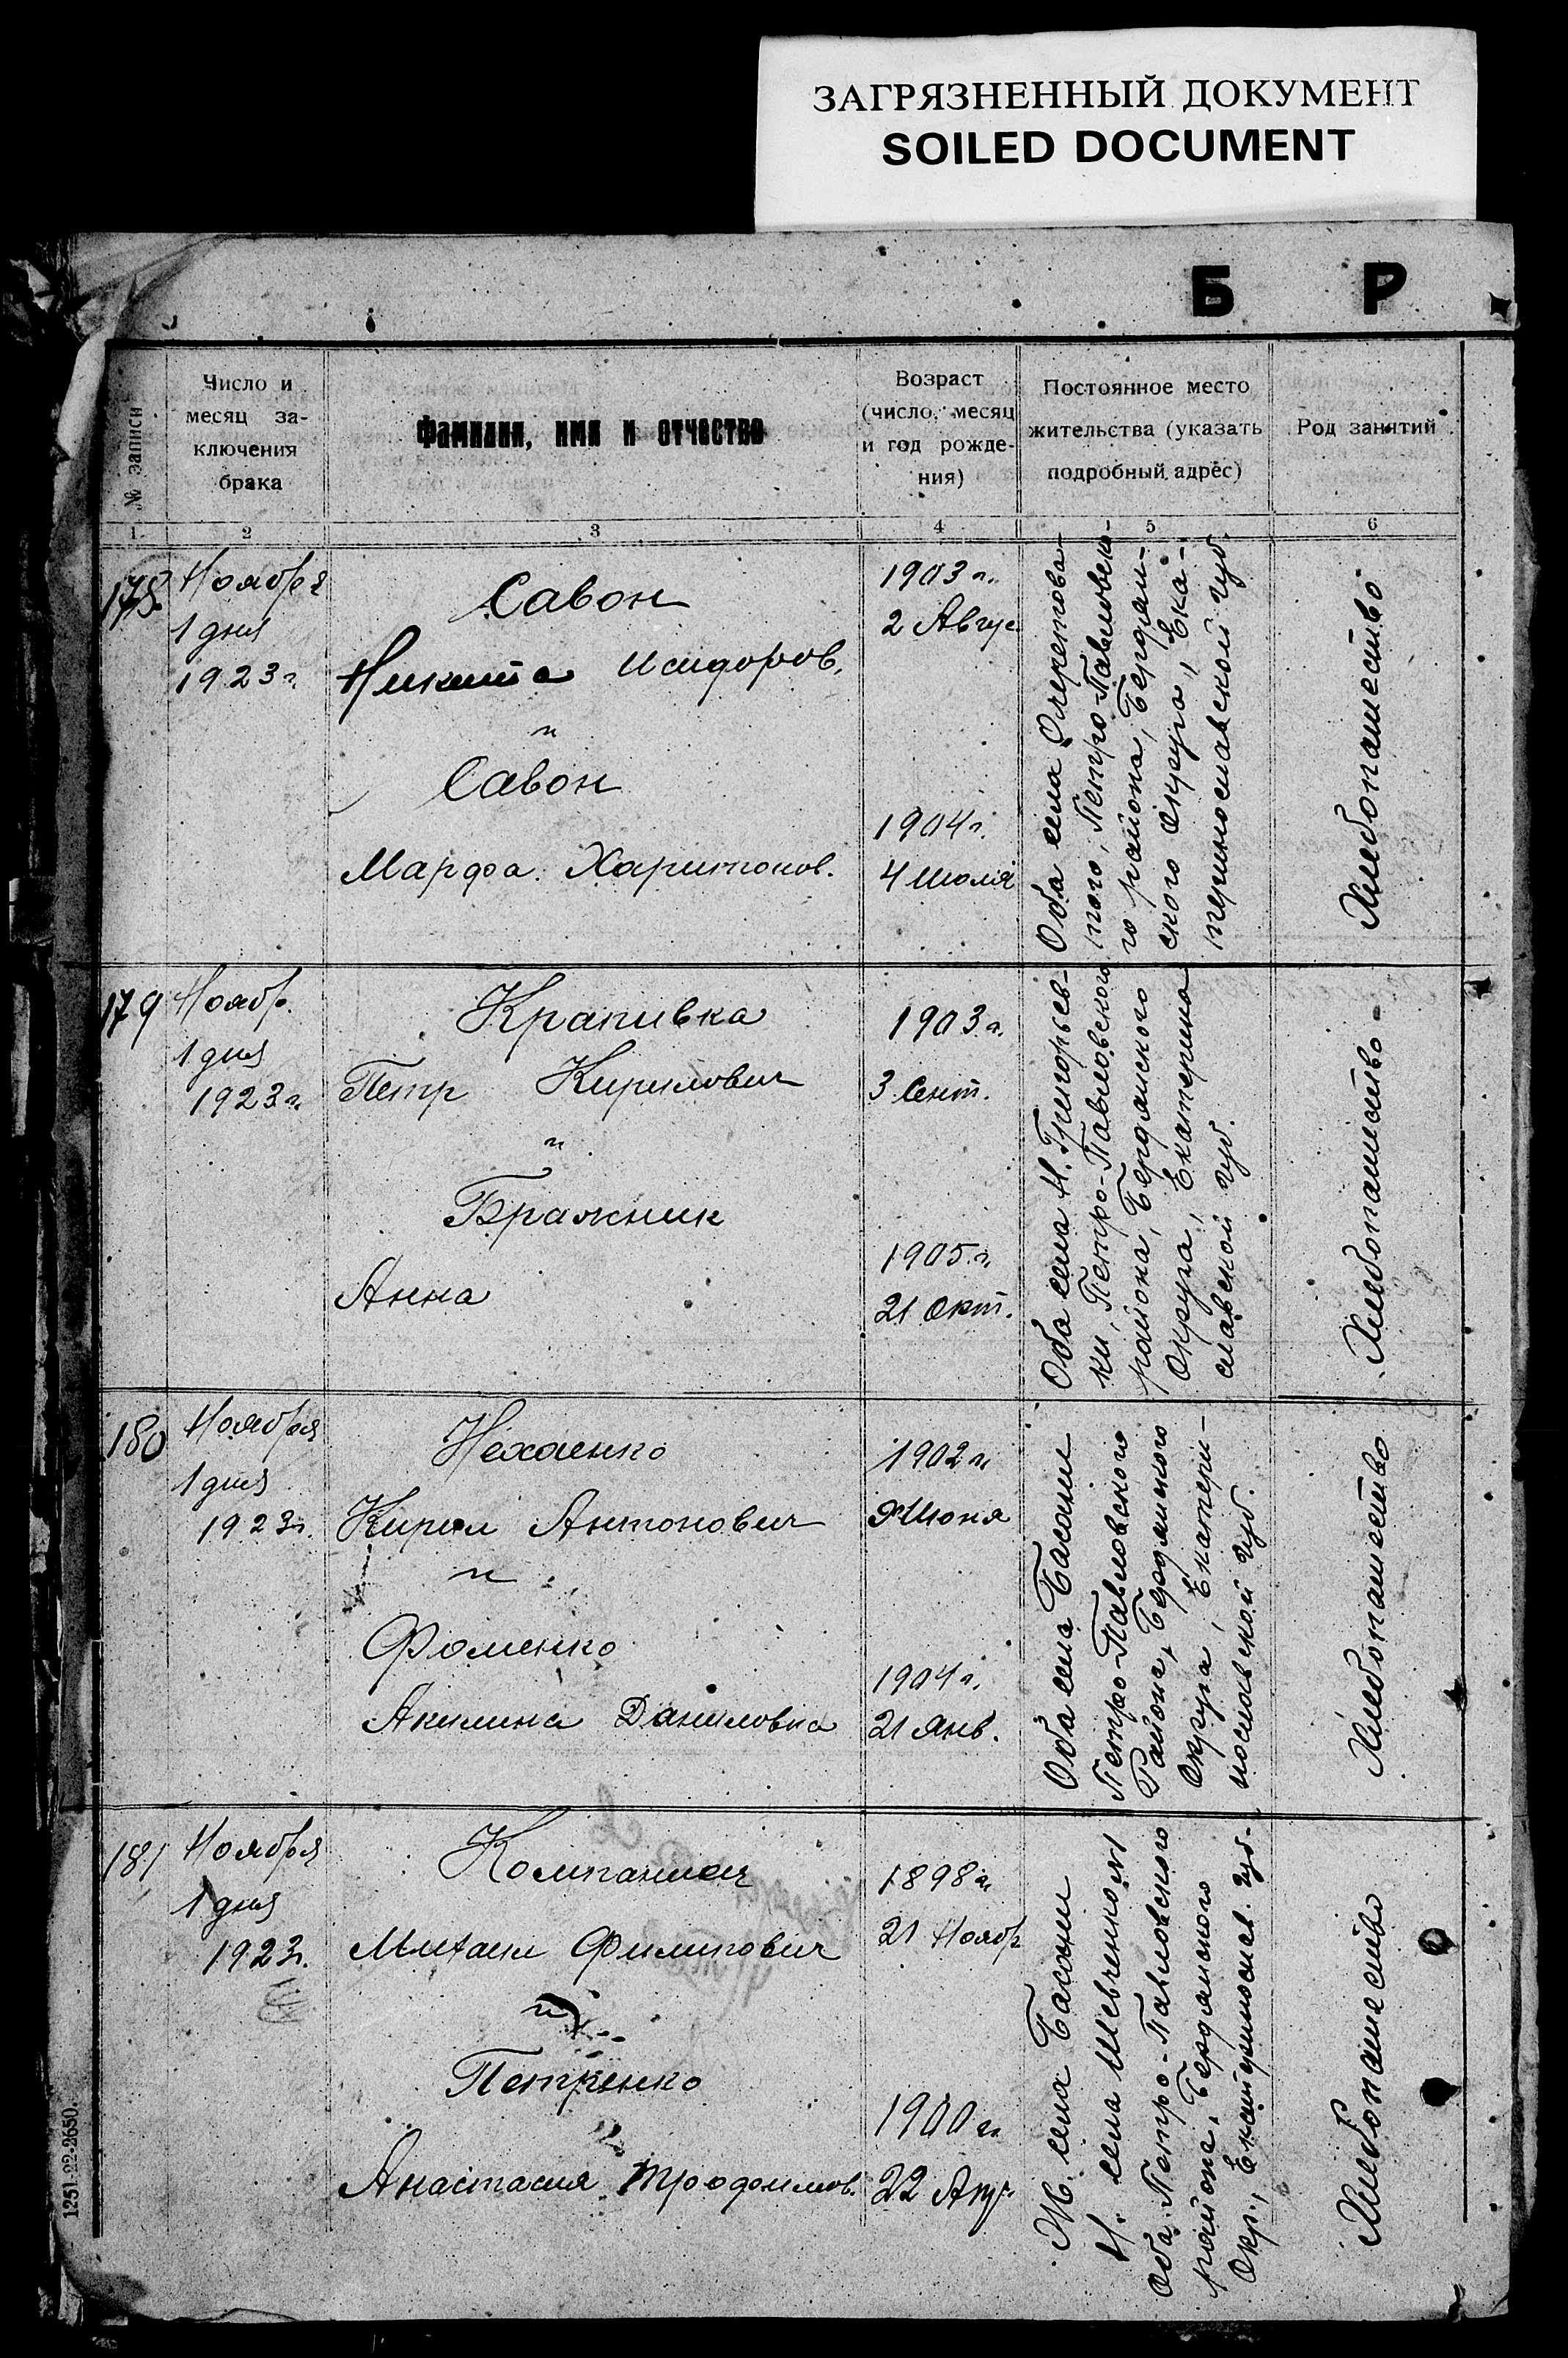 ЗАГРЯЗНЕННЫЙ ДОКУМЕНТ
SOILED DOCUMENT
Б Р
№ записи
Число и
месяц за-
ключения
брака
Фамилия, имя и отчество
Возраст
(число, месяц
и год рожде-
ния)
Постоянное место
жительства (указать
подробный адрес)
Род занятий
1 2 3 4 5 6
178
Ноября
1 дня
1923 г.
Савон
Никита Исидоров.
и
Савон
Марфа Харитонов.
1903 г.
2 Авгус
1904 г.
4 Июля
Оба села Очеретова-
того, Петро-Павловско-
го района, Бердян-
ского округа, Ека-
теринославской губ.
Хлебопашество
179
Ноябр.
1 дня
1923 г.
Крапивка
Петр Кирилович
и
Бражник
Анна
1903 г.
3 Сент.
1905 г.
21 Окт.
Оба села Н. Григорьев-
ки, Петро-Павловского
района, Бердянского
Округа, Екатерино
славской губ.
Хлебопашество
180
Ноября
1 дня
1923 г.
Нехаенко
Кирил Антонович
и
Фоменко
Акилина Даниловна
1902 г.
Июня
1904 г.
21 Янв.
Оба села Басани
Петро-Павловского
Района, Бердянского
Округа, Екатери-
нославской губ.
Хлебопашество
181
Ноября
1 дня
1923 г.
Компаниец
Михаил Филипович
и
Петренко
Анастасия Трофимов.
1898 г.
21 Ноябр
1900 г.
22 Апр.
Ж. села Басани
Н. села Шевченково
Оба Петро-Павловского
района, Бердянского
Окр., Екатеринослав. губ.
Хлебопашество
1251-22-2650.